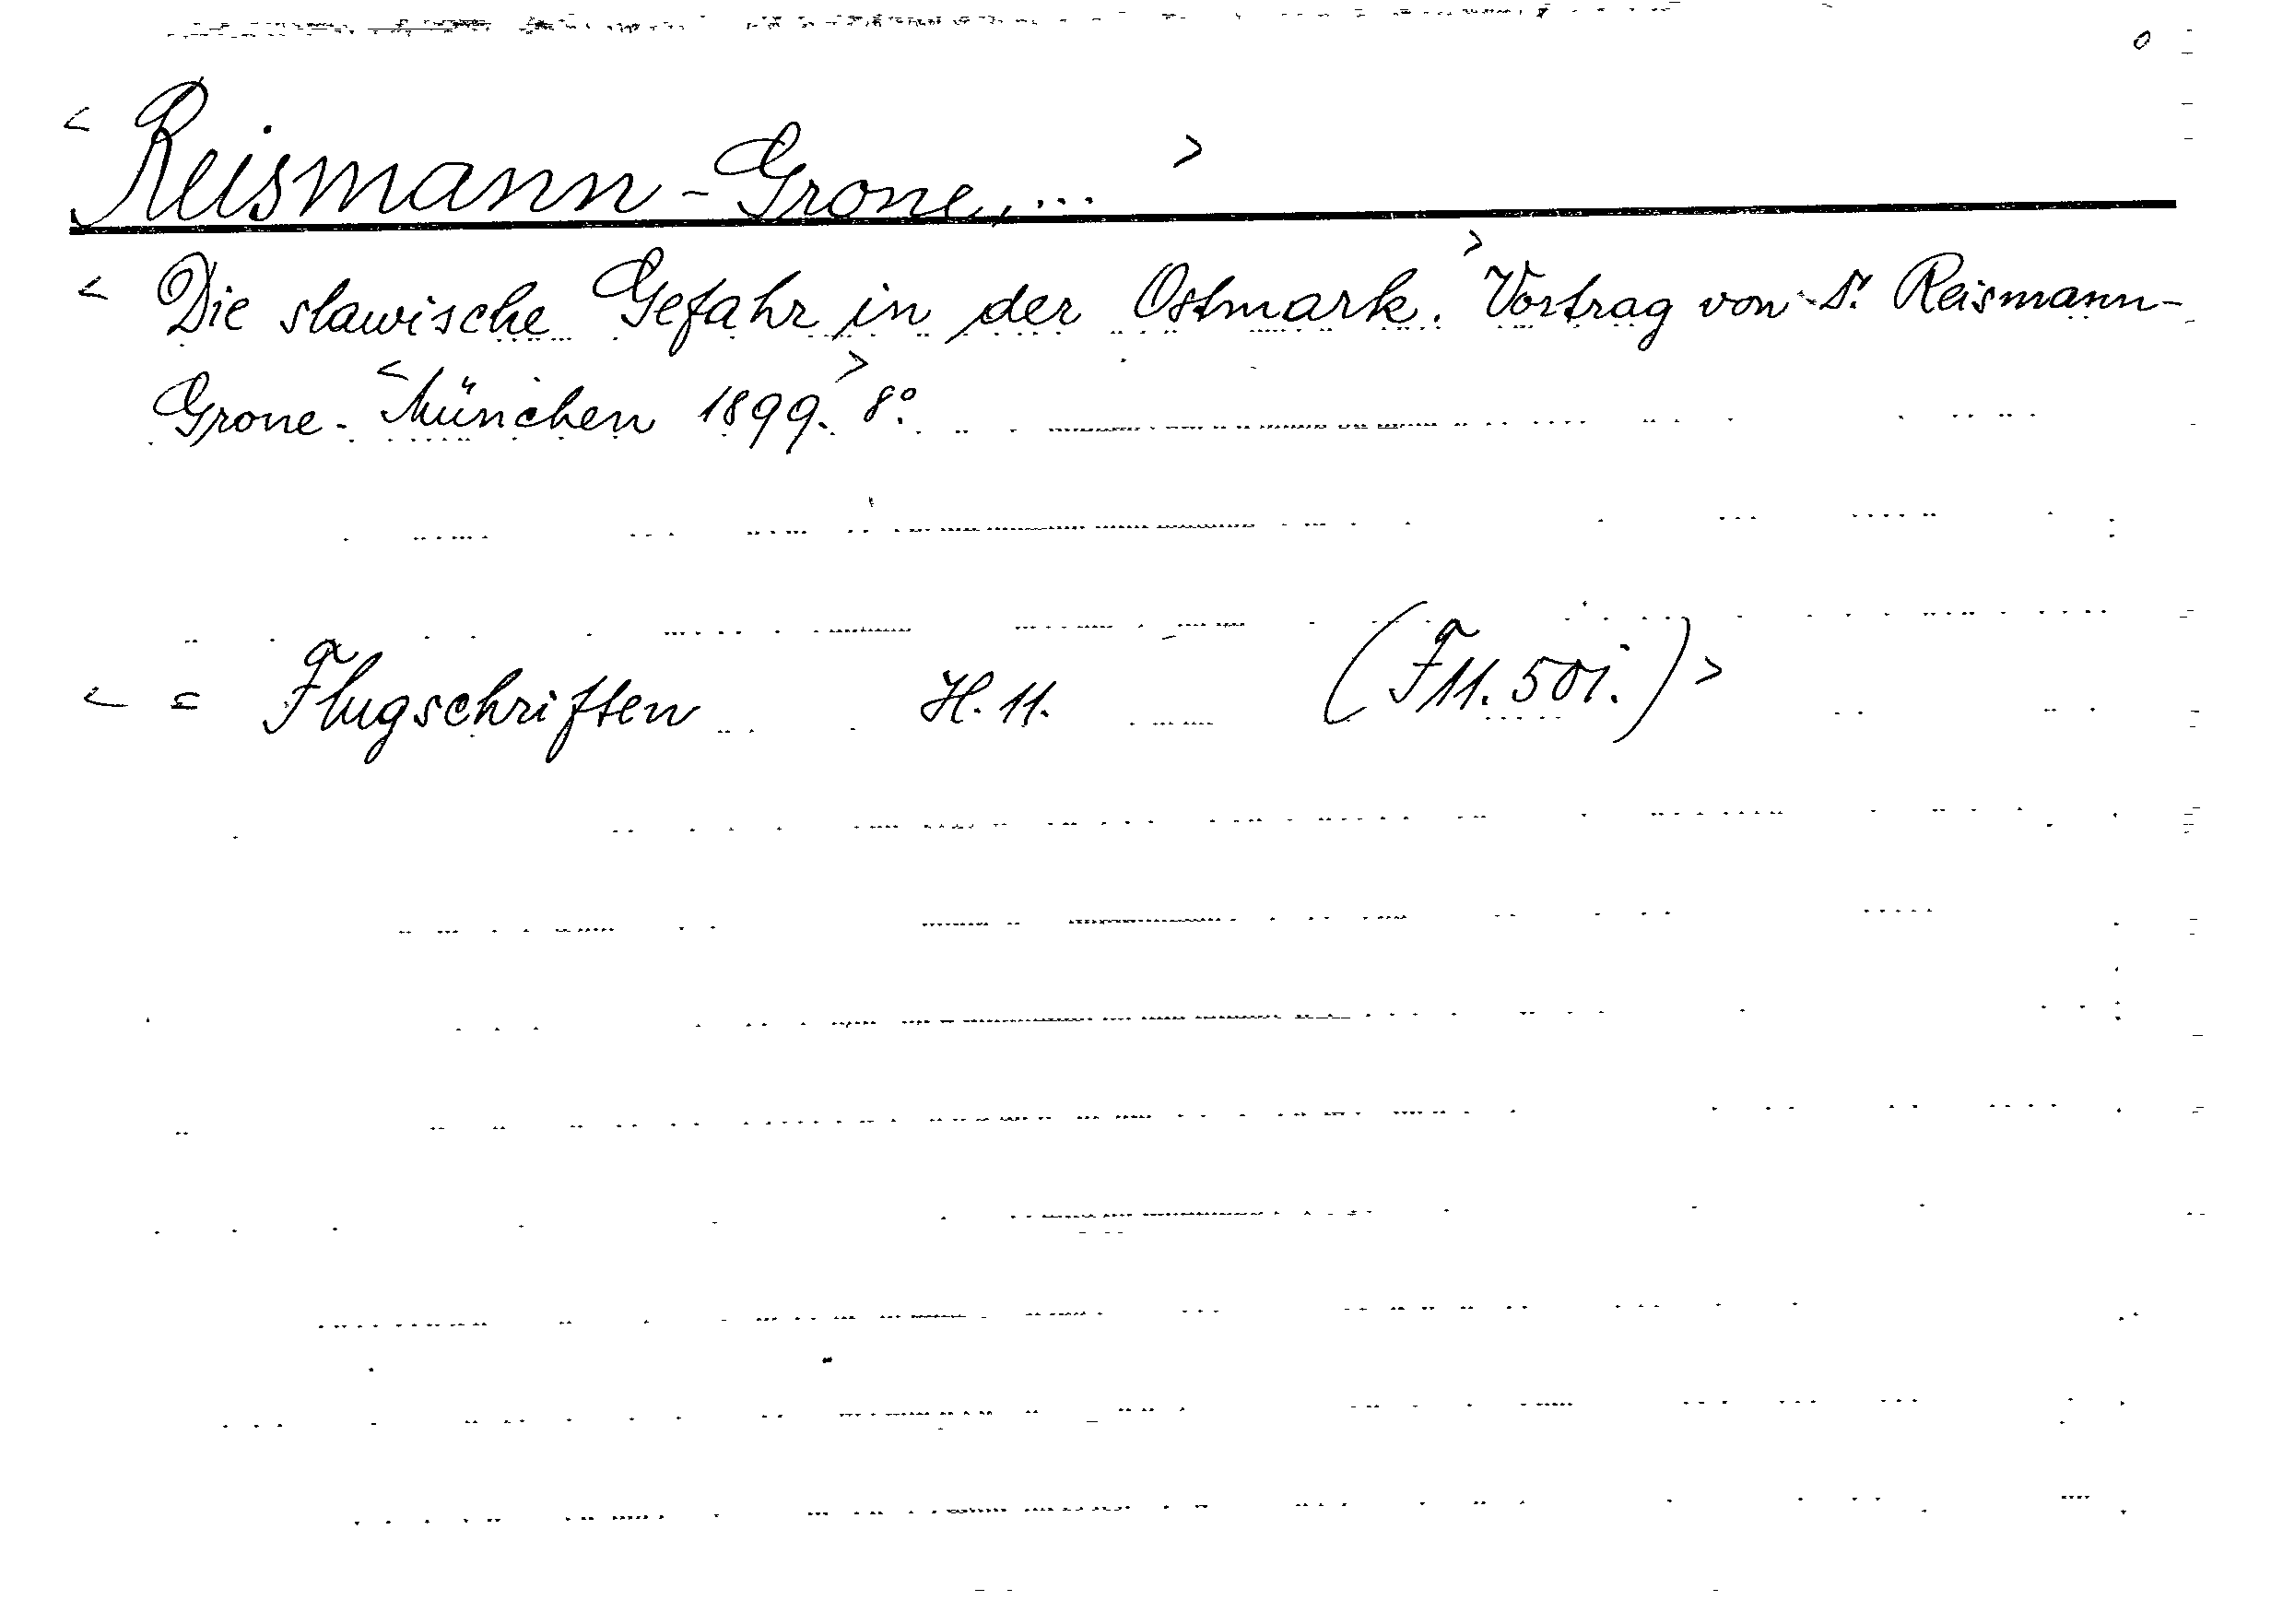 < Reismann-Grone, ... >
< Die slawische Gefahr in der Ostmark. > Vortrag von Dr. Reismann-
Grone. < München 1899. > 8°.
< = Flugschriften H. 11. (F11. 50i.) >